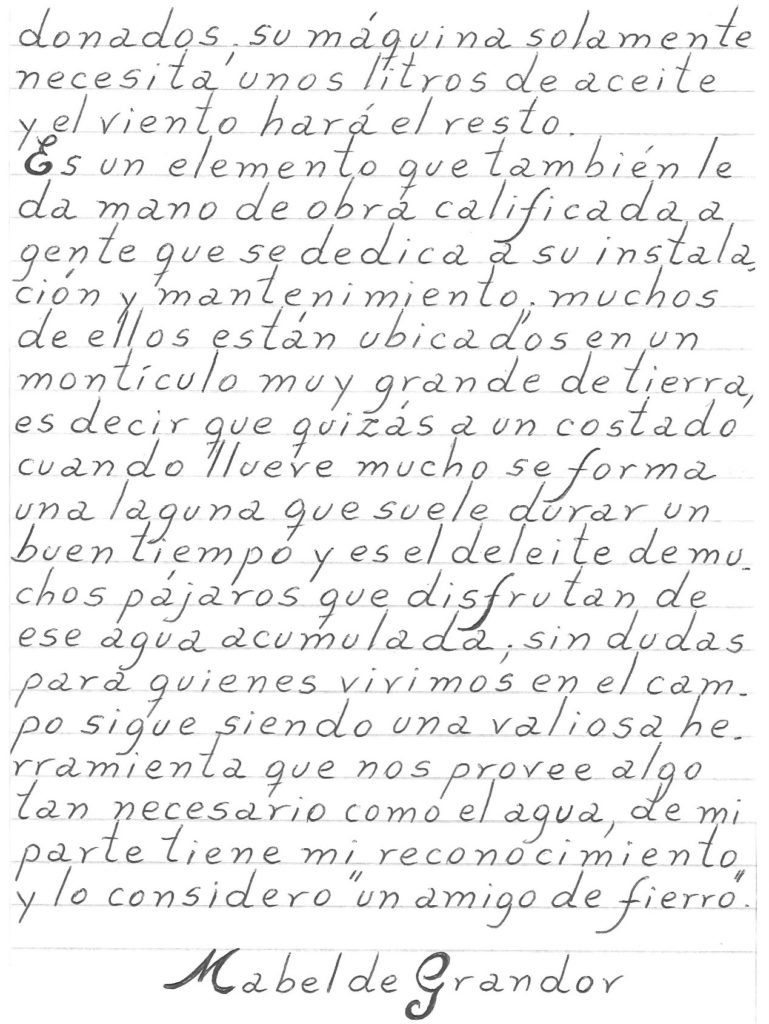 donados, su máquina solamente
necesita unos litros de aceite
y el viento hará el resto.
Es un elemento que también le
da mano de obra calificada a
gente que se dedica a su instala-
ción y mantenimiento, muchos
de ellos están ubicados en un
montículo muy grande de tierra,
es decir que quizás a un costado
cuando llueve mucho se forma
una laguna que suele durar un
buen tiempo y es el deleite de mu-
chos pájaros que disfrutan de
ese agua acumulada, sin dudas
para quienes vivimos en el cam-
po sigue siendo una valiosa he-
rramienta que nos provee algo
tan necesario como el agua, de mi
parte tiene mi reconocimiento
y lo considero "un amigo de fierro".
Mabel de Grandor